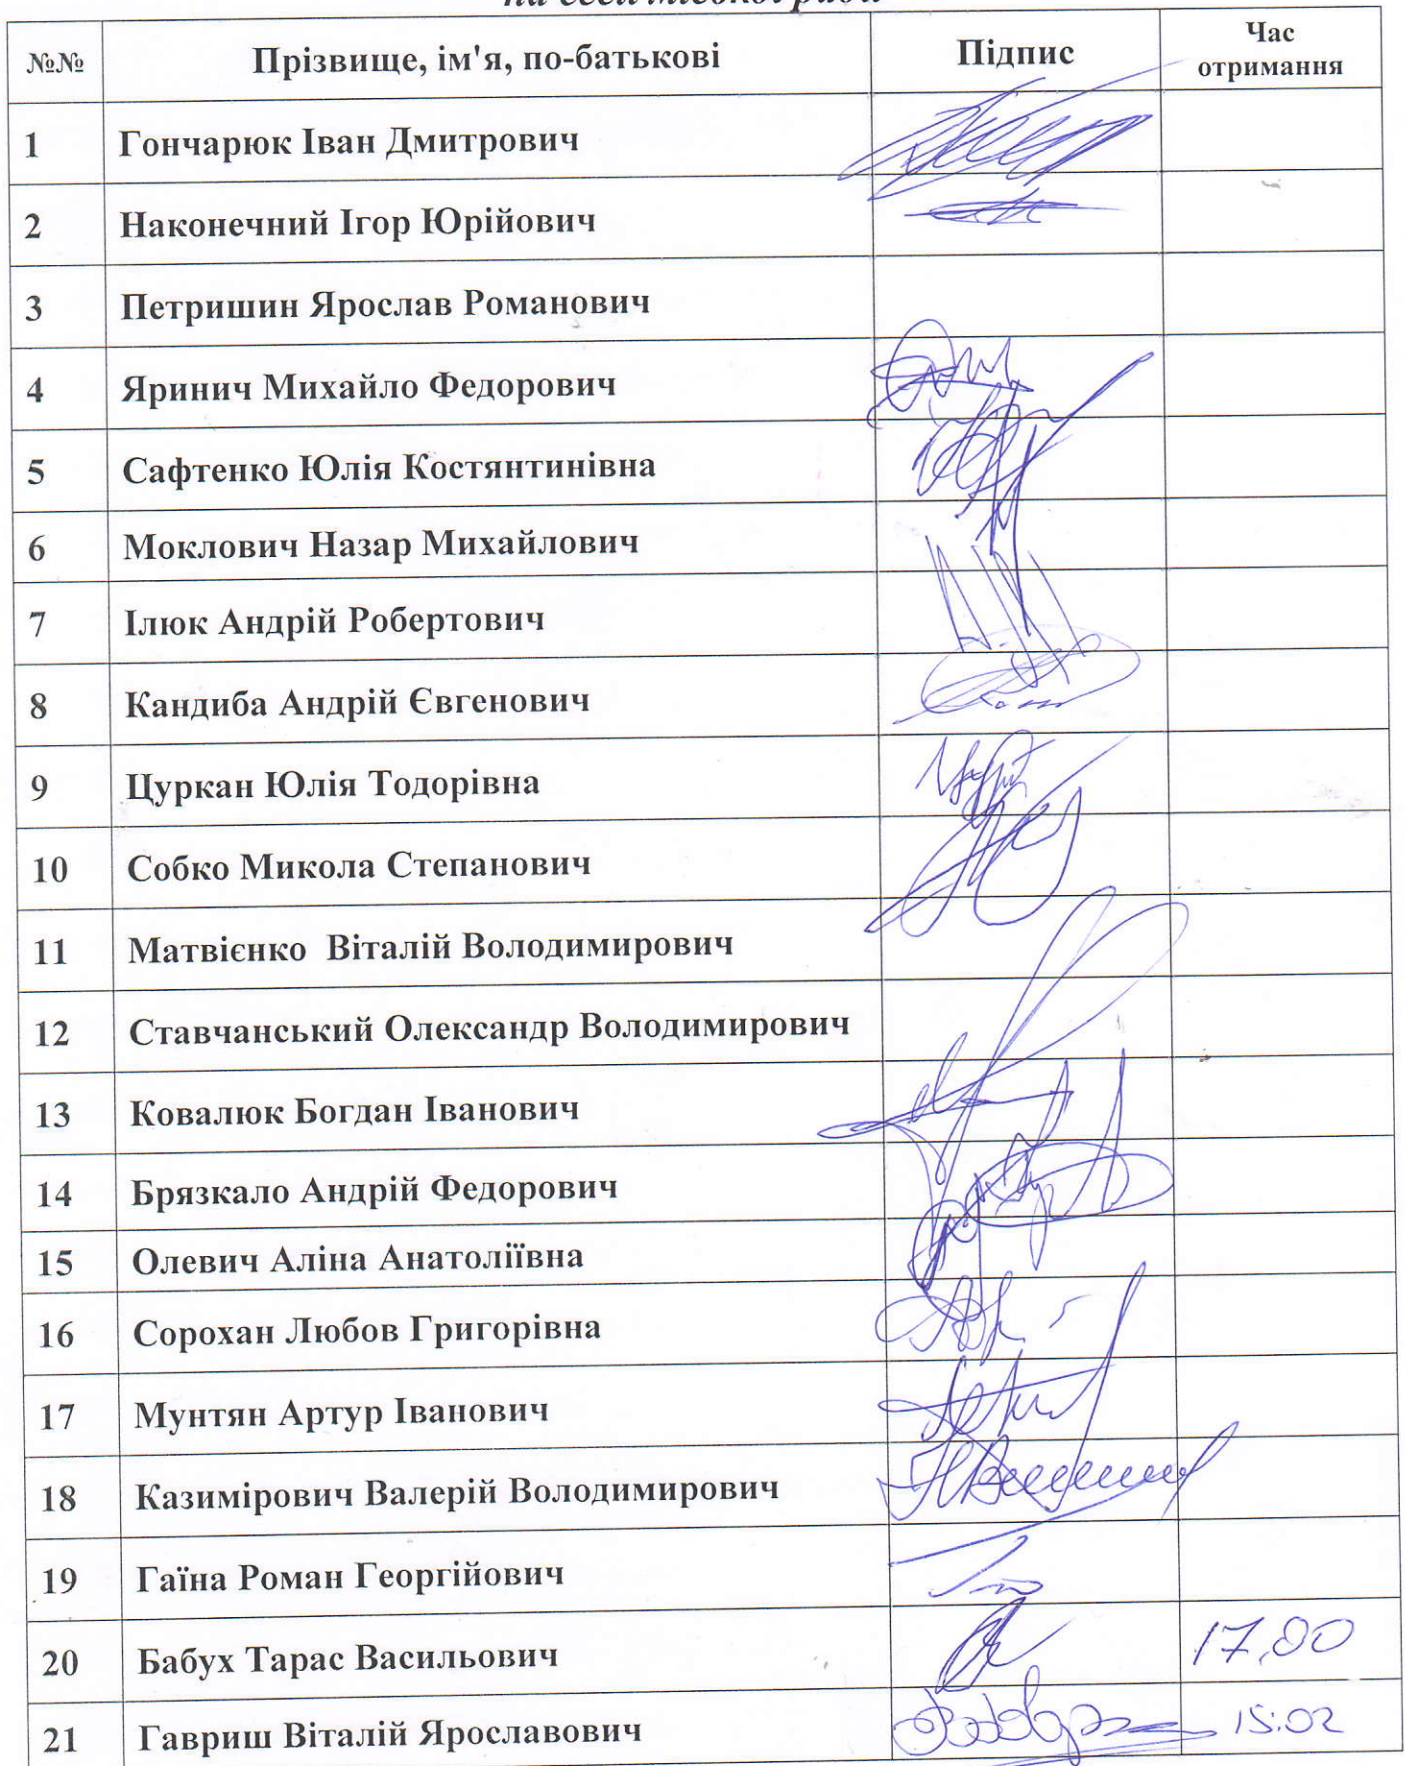 №№ Прізвище, ім'я, по-батькові Підпис Час отримання
1 Гончарюк Іван Дмитрович
2 Наконечний Ігор Юрійович
3 Петришин Ярослав Романович
4 Яринич Михайло Федорович
5 Сафтенко Юлія Костянтинівна
6 Моклович Назар Михайлович
7 Ілюк Андрій Робертович
8 Кандиба Андрій Євгенович
9 Цуркан Юлія Тодорівна
10 Собко Микола Степанович
11 Матвієнко Віталій Володимирович
12 Ставчанський Олександр Володимирович
13 Ковалюк Богдан Іванович
14 Брязкало Андрій Федорович
15 Олевич Аліна Анатоліївна
16 Сорохан Любов Григорівна
17 Мунтян Артур Іванович
18 Казимірович Валерій Володимирович
19 Гаїна Роман Георгійович
20 Бабух Тарас Васильович 17,00
21 Гавриш Віталій Ярославович 15:02